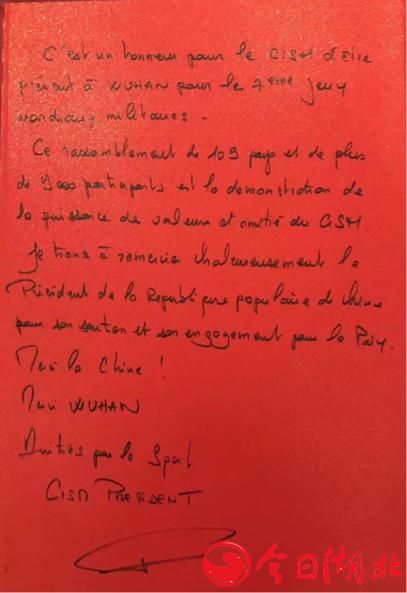 C'est un honneur pour le CISM d'être
présent à WUHAN pour le 7ème jeux
mondiaux militaires.
Ce rassemblement de 109 pays et de plus
de 9000 participants est la demonstration de
la puissance des valeurs et amitié du CISM.
Je tiens à remercier chaleureusement le
Président de la République populaire de chine
pour son soutien et son engagement pour la Paix.
Merci la Chine !
Merci WUHAN
Amitiés par le Sport
CISM PRESIDENT
今日湖北